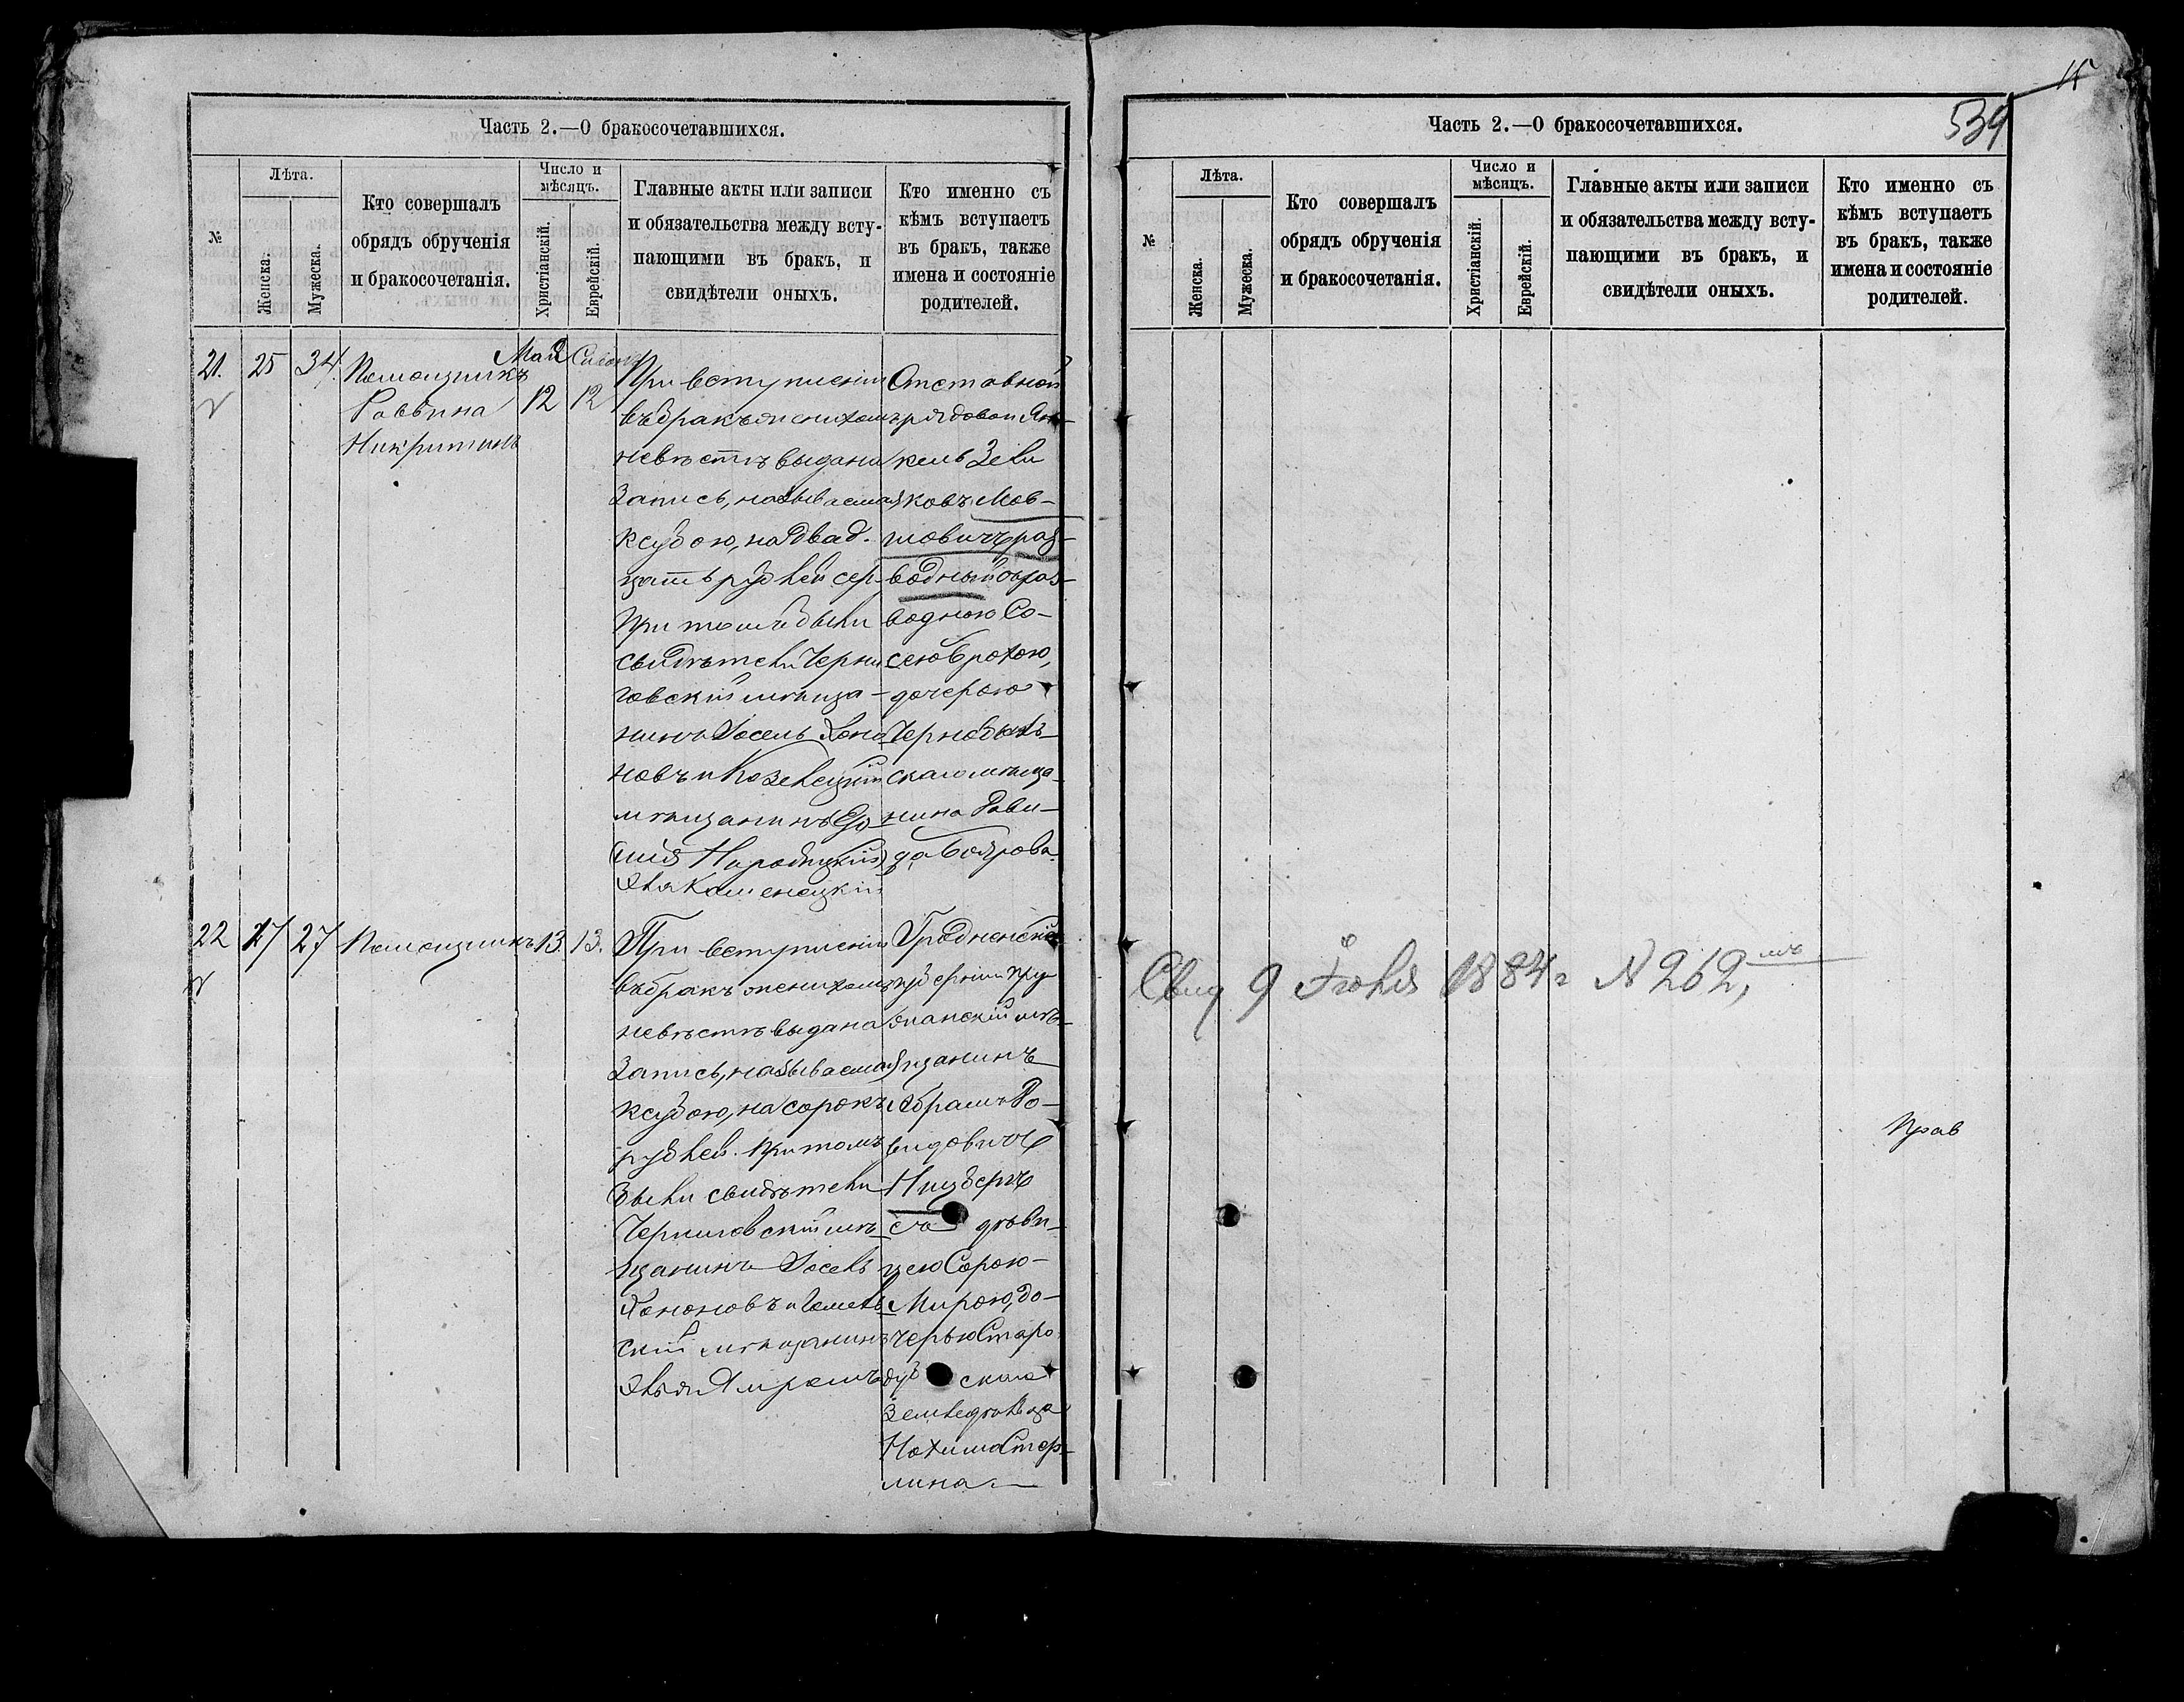 Часть 2.—О бракосочетавшихся.
№
Лѣта.
Женска.
Мужеска.
Кто совершалъ
обрядъ обрученія
и бракосочетанія.
Число и
мѣсяцъ.
Христіанскій.
Еврейскій.
Главные акты или записи
и обязательства между всту-
пающими въ бракъ, и
свидѣтели оныхъ.
Кто именно съ
кѣмъ вступаетъ
въ бракъ, также
имена и состояніе
родителей.
21.
25
34.
Помощникъ
Раввина
Никритинъ
Мая
12
Сивонъ
12
При вступленіи
въ бракъ женихомъ
невѣстѣ выдана
запись, называемая
ксубою, на двад-
цать рублей сер.
При томъ были
свидѣтели Черни
говскій мѣща-
нинъ Іосель Хоно
новъ и Козелецкій
мѣщанинъ
Народицкій
Каменецкій
Отставной
рядовой Ян-
кель Зели
ковъ Мов-
шовичъ раз-
водный съ раз-
водною Со-
сею Брохою,
дочерью
Чернобыль-
скаго мѣща-
нина Дави-
да Боярова.
22
17
27
Помощникъ
13.
13.
При вступленіи
въ бракъ женихомъ
невѣстѣ выдана
запись, называемая
ксубою, на сорокъ
рублей. При томъ
были свидѣтели
Черниговскій мѣ-
щанинъ Іосель
Хононовъ и Гомель
скій мѣщанинъ
Гродненской
губерніи Пру
жанскій мѣ-
щанинъ
Абрамъ Да-
видовичъ
Низбергъ
съ дѣви-
цею Сорою-
Мирою, до-
черью Старо
дубскаго
земледѣльца
Нохима Стер-
лина
Часть 2.—О бракосочетавшихся.
539
15
№
Лѣта.
Женска.
Мужеска.
Кто совершалъ
обрядъ обрученія
и бракосочетанія.
Число и
мѣсяцъ.
Христіанскій.
Еврейскій.
Главные акты или записи
и обязательства между всту-
пающими въ бракъ, и
свидѣтели оныхъ.
Кто именно съ
кѣмъ вступаетъ
въ бракъ, также
имена и состояніе
родителей.
Свид 9 Іюля 1884 г N 262,
Прав